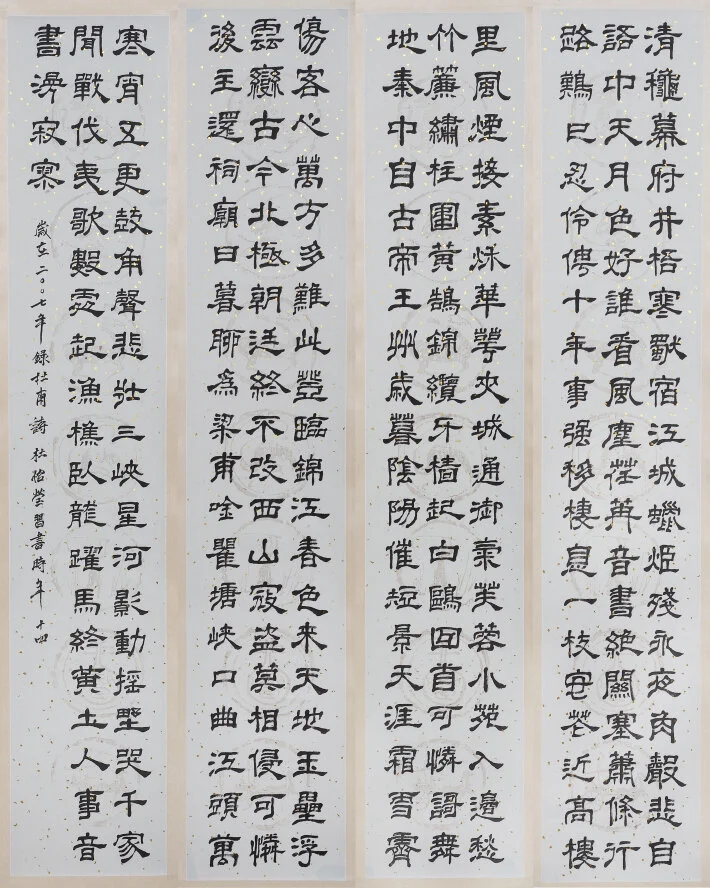 清穐幕府井梧寒獨宿江城蠟炬殘永夜角聲悲自
語中天月色好誰看風塵荏苒音書絕關塞蕭條行
路難已忍伶俜十年事强移棲息一枝安花近高樓
傷客心萬方多難此登臨錦江春色来天地玉壘浮
雲變古今北極朝廷終不改西山寇盜莫相侵可憐
後主還祠廟日暮聊為梁甫吟瞿塘峽口曲江頭萬
里風煙接素秋華萼夾城通御氣芙蓉小苑入邊愁
竹簾繡柱圍黃鵠錦纜牙檣起白鷗回首可憐謌舞
地秦中自古帝王州歲暮陰陽催短景天涯霜雪霽
寒宵五更鼓角聲悲壯三峽星河影動搖野哭千家
聞戰伐夷歌數處起漁樵臥龍躍馬終黃土人事音
書寂寥
歲在二〇〇七年錄杜甫詩杜瑩習書時年十四